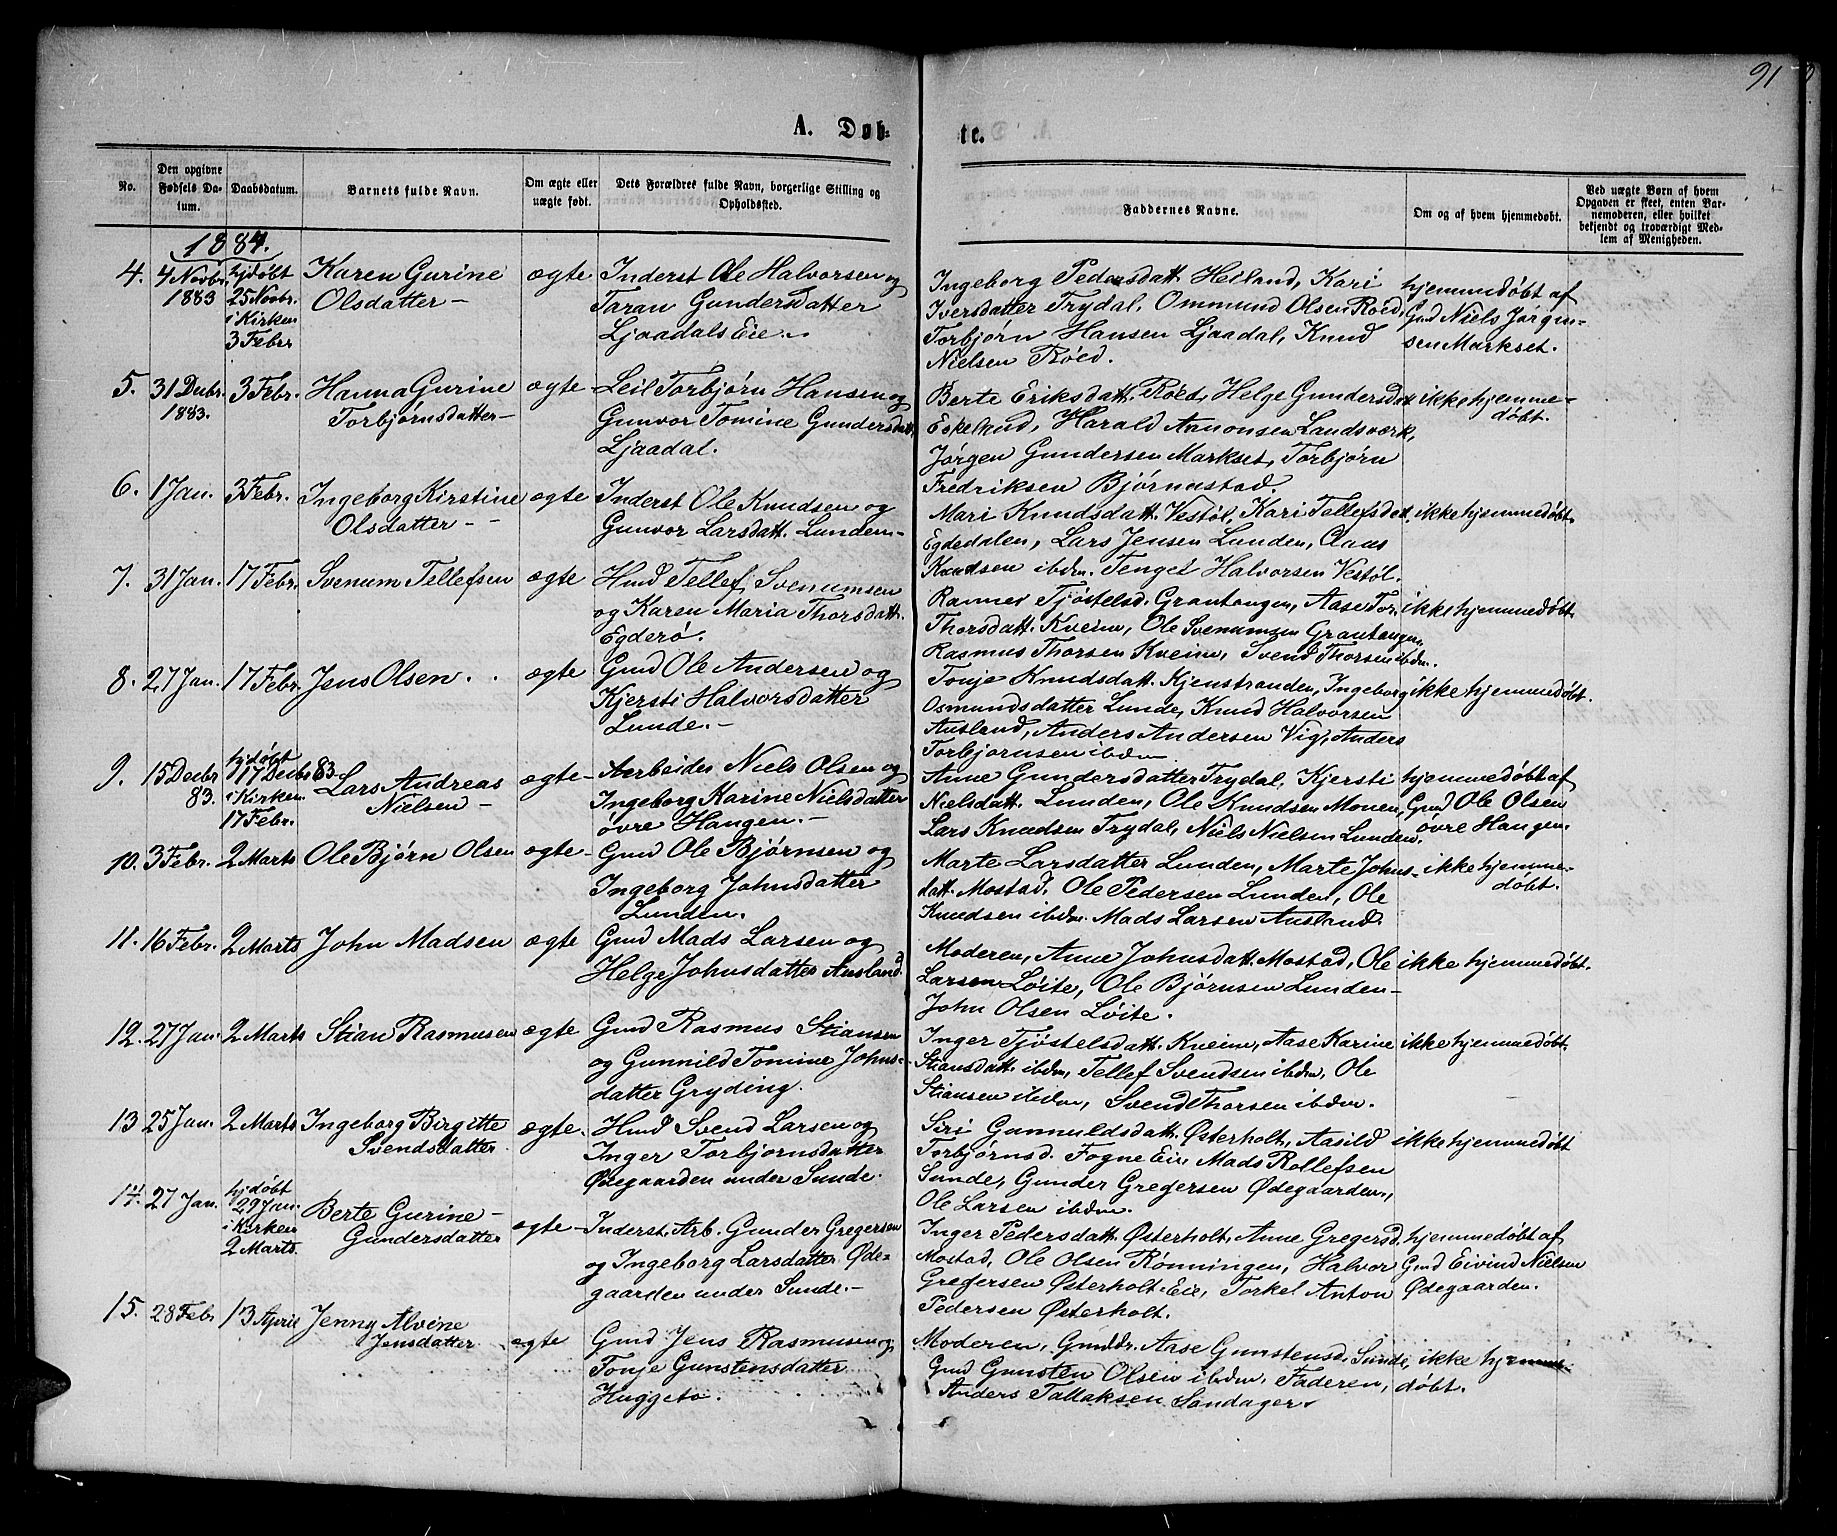 91
A. Døbte.
No.
Den opgivne Fødsels Datum.
Daabsdatum.
Barnets fulde Navn.
Om ægte eller uægte født.
Dets Forældres fulde Navn, borgerlige Stilling og Opholdssted.
Faddernes Navne.
Om og af hvem hjemmedøbt.
Ved uægte Børn af hvem Opgaven er skeet, enten Barnemoderen, eller hvilket bekjendt og troværdigt Medlem af Menigheden.
1884.
4. 4 Novbr. 1883
hjdøbt 25 Novbr. i Kirken 3 Febr
Karen Gurine Olsdatter –
ægte
Inderst Ole Halvorsen og
Taran Gundersdatter
Ljaadals Eie.
Ingeborg Pedersdatt. Heiland, Kari
Iversdatter Trydal, Ommund Olsen Roed,
Torbjørn Hansen Ljaadal, Knud
Nielsen Röed.
hjemmedøbt af
Gmd Niels Jørgen-
sen Markset.
5. 31 Decbr. 1883.
3 Febr.
Hanna Gurine
Torbjørnsdatter –
ægte
Leil. Torbjørn Hansen og
Gunvor Tomine Gundersdatt.
Ljaadal.
Berte Eriksdatt. Röed, Helge Gundersdatt
Harald Aanonsen Landsværk,
Jørgen Gundersen Markset, Torbjørn
Fredriksen Bjørnestad
ikke hjemme-
døbt.
6. 1 Jan.
3 Febr.
Ingeborg Kirstine
Olsdatter – –
ægte
Inderst Ole Knudsen og
Gunvor Larsdatt. Lunden –
Mari Knudsdatt. Vestøl, Kari Tellefsdatt.
Egdedalen, Lars Jensen Lunden, Claus
Knudsen ibdm. Tengel Halvorsen Vestøl.
ikke hjemmedøbt.
7. 31 Jan.
17 Febr.
Svenum Tellefsen
ægte
Hmd Tellef Svenumsen
og Karen Maria Thorsdatt.
Egderø.
Tjøstelsd. Grautangen, Aase Tor.
Thorsdatt. Kveim, Ole Svenumsen Grautangen,
Rasmus Thorsen Kveim, Svend Thorsen ibdm.
ikke hjemmedøbt.
8. 27 Jan.
17 Febr.
Jens Olsen. .
ægte
Gmd Ole Andersen og
Kjersti Halvorsdatter
Lunde. –
Tonje Knudsdatt. Kjenstranden, Ingeborg
Osmundsdatter Lunde, Knud Halvorsen
Ausland, Anders Andersen Vig, Anders
Torbjørnsen ibdm
ikke hjemmedøbt.
9. 15 Decbr 83.
hjdøbt 17 Decbr 83 i Kirken 17 Febr.
Lars Andreas
Nielsen –
ægte –
Arbeider Niels Olsen og
Ingeborg Karine Nielsdatter
øvre Haugen. –
Anne Gundersdatter Trydal, Kjersti
Nielsdatt. Lunden, Ole Knudsen Monen,
Lars Knudsen Trydal, Niels Nielsen Lunden.
hjemmedøbt af
Gmd Ole Olsen
øvre Haugen.
10. 3 Febr.
2 Marts
Ole Bjørn Olsen
ægte –
Gmd Ole Bjørnsen og
Ingeborg Johnsdatter
Lunden.
Marte Larsdatter Lunden, Marte Johns-
datt. Mostad, Ole Pedersen Lunden, Ole
Knudsen ibdm. Mads Larsen Ausland.
ikke hjemme-
døbt.
11. 16 Febr.
2 Marts
John Madsen
ægte
Gmd Mads Larsen og
Helge Johnsdatter Ausland.
Moderen, Anne Johnsdatt. Mostad, Ole
Larsen Løite, Ole Bjørnsen Lunden –
John Olsen Løite.
ikke hjemmedøbt.
12. 27 Jan.
2 Marts
Stian Rasmusen
ægte
Gmd Rasmus Stiansen
og Gunnild Tomine Johns-
datter Gryding.
Inger Tjøstelsdatt. Kveim, Aase Karine
Stiansdatt. ibdm, Tellef Svendsen ibdm, Ole
Stiansen ibdm, Svend Thorsen ibdm.
ikke hjemmedøbt.
13 25 Jan.
2 Marts
Ingeborg Birgitte
Svendsdatter
ægte.
Hmd Svend Larsen og
Inger Torbjørnsdatter
Ødegaarden under Sunde.
Siri Gunnuldsdatt. Østerholt, Aasild
Torbjørnsd. Fogne Eie, Mads Rollefsen
Sunde, Gunder Gregersen Ødegaarden,
Ole Larsen ibdm.
ikke hjemmedøbt
14. 27 Jan.
hjdøbt 29 Jan. i Kirken 2 Marts.
Berte Gurine –
Gundersdatter
ægte –
Inderst, Arb. Gunder Gregersen
og Ingeborg Larsdatter Øde-
gaarden under Sunde. –
Inger Pedersdatt. Østerholt, Anne Gregersd.
Mostad, Ole Olsen Rønningen, Halvor
Gregersen Østerholt Eie, Torkel Anton
Pedersen Østerholt.
hjemmedøbt af
Gmd Eivind Nielsen
Ødegaarden.
15. 28 Febr
13 April
Jenny Alvine
Jensdatter
ægte
Gmd Jens Rasmusen og
Tonje Gunstensdatter
Huggeto.
Moderen, Aase Gunstensd. Sunde,
Gmd Gunsten Olsen ibdm, Faderen,
Anders Tallaksen Søndager.
ikke hjemme-
døbt.